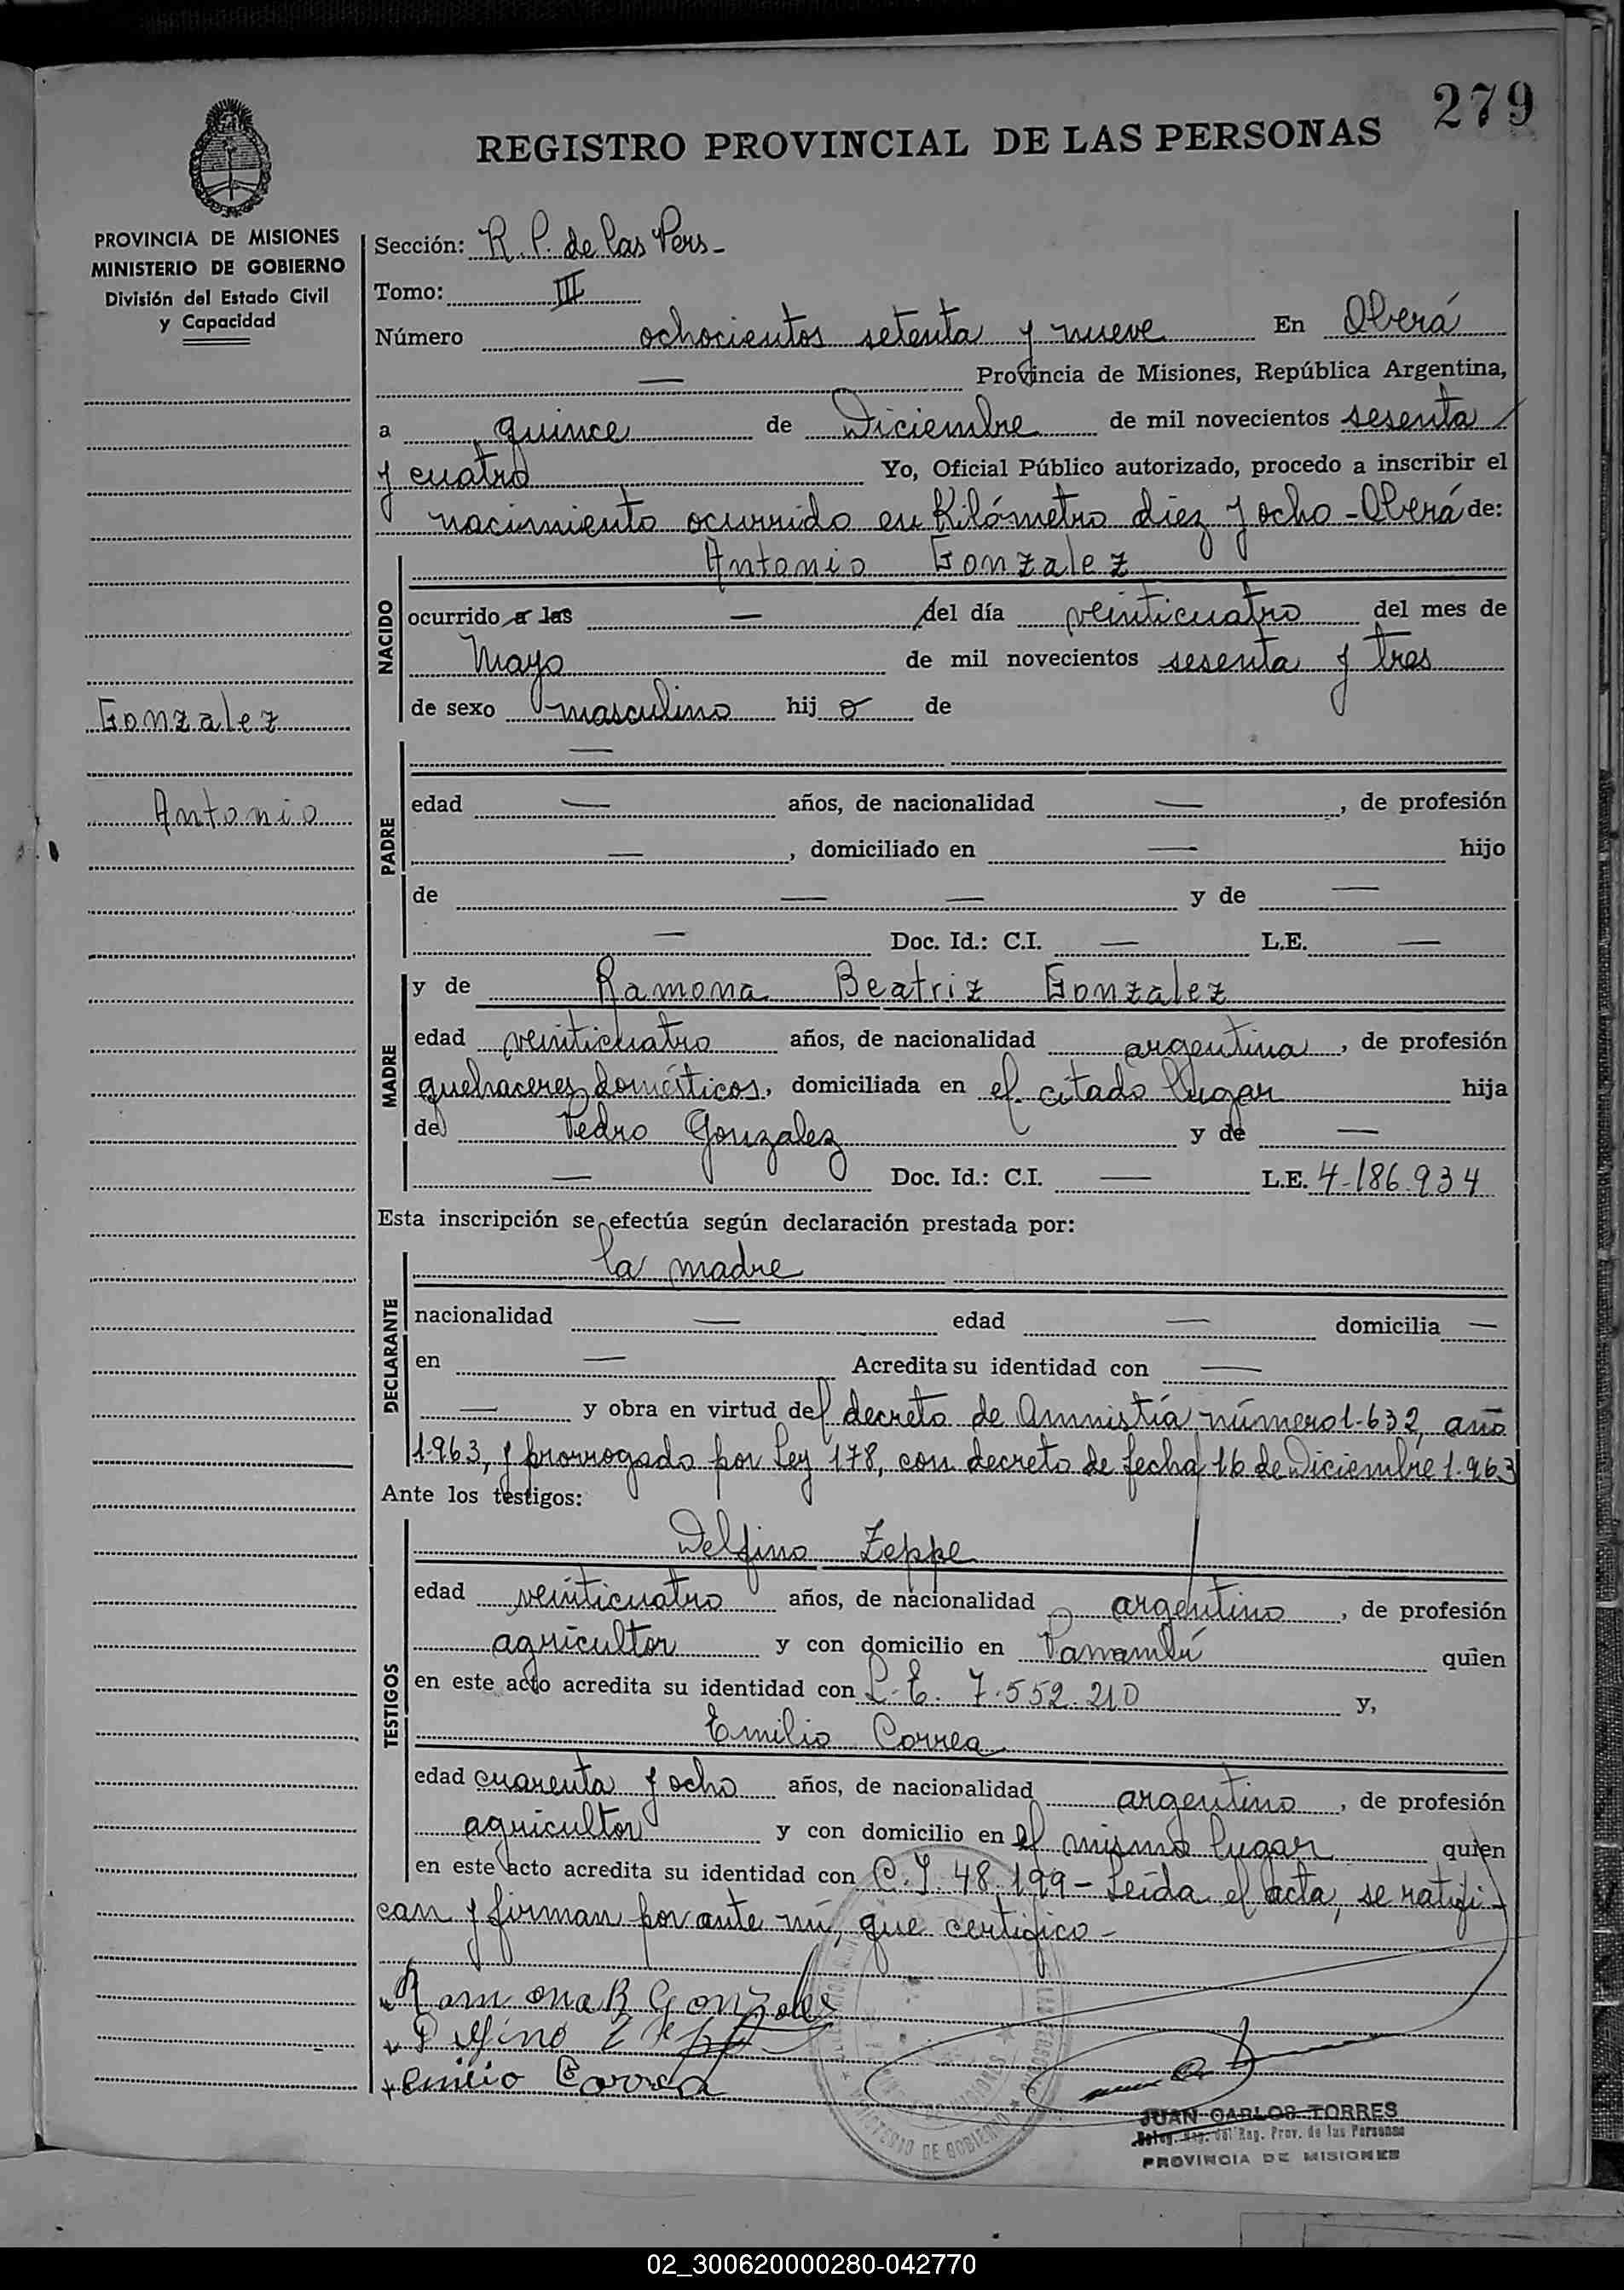 279
REGISTRO PROVINCIAL DE LAS PERSONAS
PROVINCIA DE MISIONES
MINISTERIO DE GOBIERNO
División del Estado Civil
y Capacidad
Gonzalez
Antonio
Sección: R. P. de las Pers-
Tomo: III
Número ochocientos setenta y nueve En Oberá
— Provincia de Misiones, República Argentina,
a quince de Diciembre de mil novecientos sesenta
y cuatro Yo, Oficial Público autorizado, procedo a inscribir el
nacimiento ocurrido en Kilómetro diez y ocho - Oberá de:
NACIDO
Antonio Gonzalez
ocurrido a las — del día veinticuatro del mes de
Mayo de mil novecientos sesenta y tres
de sexo masculino hijo de
PADRE
—
edad — años, de nacionalidad —, de profesión
—, domiciliado en — hijo
de — — y de —
— Doc. Id.: C.I. — L.E. —
MADRE
y de Ramona Beatriz Gonzalez
edad veinticuatro años, de nacionalidad argentina, de profesión
quehaceres domésticos, domiciliada en el citado lugar hija
de Pedro Gonzalez y de —
— Doc. Id.: C.I. — L.E. 4-186.934
Esta inscripción se efectúa según declaración prestada por:
DECLARANTE
la madre
nacionalidad — edad — domicilia —
en — Acredita su identidad con —
— y obra en virtud del decreto de Amnistía número 1.632, año
1.963, y prorrogado por Ley 178, con decreto de fecha 16 de Diciembre 1.963
Ante los testigos:
TESTIGOS
Delfino Zeppe
edad veinticuatro años, de nacionalidad argentino, de profesión
agricultor y con domicilio en Panambí quien
en este acto acredita su identidad con L.E. 7.552.210 y,
Emilio Correa
edad cuarenta y ocho años, de nacionalidad argentino, de profesión
agricultor y con domicilio en el mismo lugar quien
en este acto acredita su identidad con C.I. 48.199 - Leída el acta, se ratifi-
can y firman por ante mí, que certifico -
Ramona B Gonzales
Delfino Zeppe
Emilio Correa
MINISTERIO DE GOBIERNO
JUAN CARLOS TORRES
Deleg. Reg. del Reg. Prov. de las Personas
PROVINCIA DE MISIONES
02_300620000280-042770